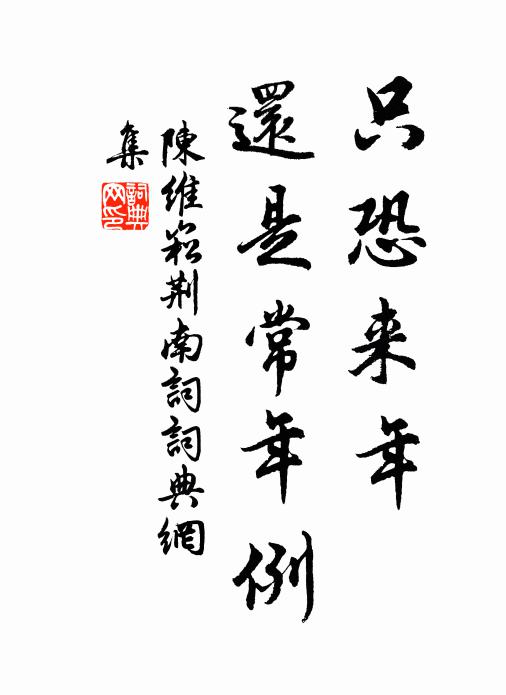 只恐来年
還是常年例
陳維崧荆南詞詞典網
集
詞典
网印